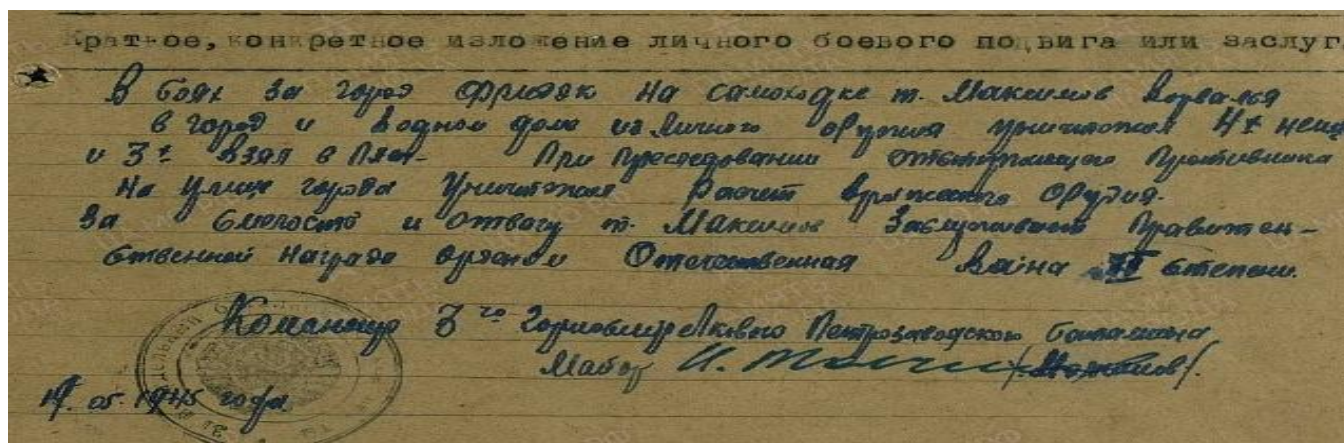 Краткое, конкретное изложение личного боевого подвига или заслуг
В боях за город Фридэк на самоходке т. Максимов ворвался
в город и водном доме из личного оружия уничтожил 4х немц
и 3х взял в плен. При преследовании отступающего противника
на улице города уничтожил расчет вражеского орудия.
За смелость и отвагу т. Максимов заслуживает правитен-
ственной награда орденом Отечественная Война II степени.
Командир 3го горнострелкового Петрозаводского батальона
Майор
05 1945 года